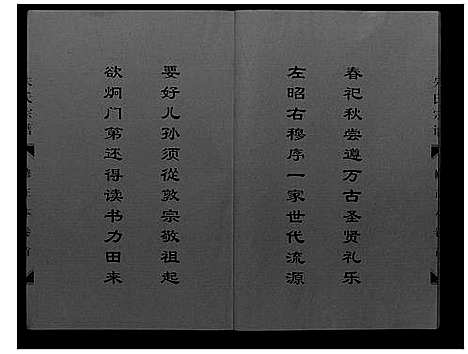 春祀秋尝遵万古圣贤礼乐
左昭右穆序一家世代流源
要好儿孙须從敦宗敬祖起
欲炯门第还得读书力田来